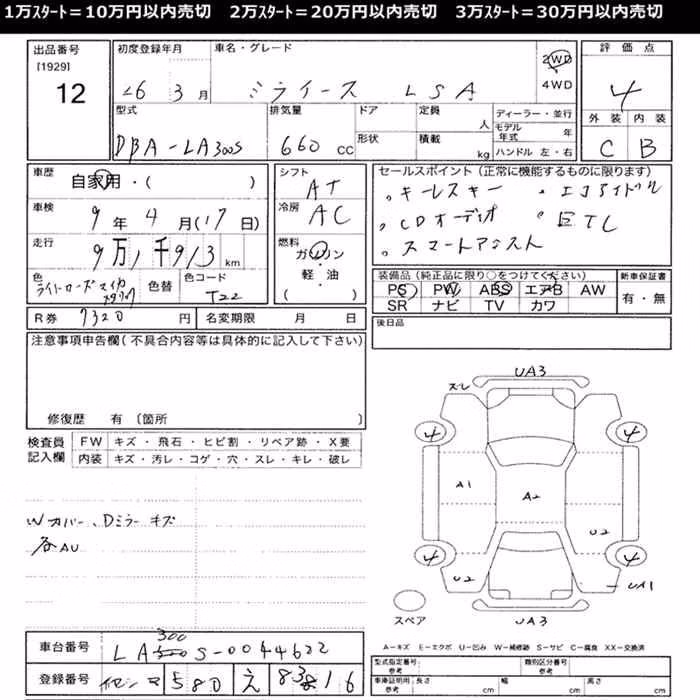 1万ｽﾀｰﾄ＝10万円以内売切　2万ｽﾀｰﾄ＝20万円以内売切　3万ｽﾀｰﾄ＝30万円以内売切
出品番号 初度登録年月 車名・グレード 評価点
[1929] 2WD
12 26 3月 ミライース LSA 4WD 4
型式 排気量 ドア 定員 人 ディーラー・並行 外装 内装
DBA-LA300S 660 CC 形状 積載 kg モデル年式 年 C B
ハンドル 左・右
車歴 自家用・( ) シフト AT セールスポイント (正常に機能するものに限ります)
車検 9年 4月(17日) 冷房 AC ・キーレスキー ・エコアイドル
・CDオーディオ ・ETC
・スマートアシスト
走行 9万1千913km 燃料 ガソリン
軽・油
( )
装備品 (純正品に限り○をつけてください) 新車保証書
色 ライトローズマイカメタリック 色替 色コード T22 PS PW ABS エアB AW 有・無
SR ナビ TV カワ
R券 7320 円 名変期限 月 日 後日品
注意事項申告欄 (不具合内容等は具体的に記入して下さい)
修復歴 有 〔箇所 〕
検査員記入欄 FW キズ・飛石・ヒビ割・リペア跡・X要
内装 キズ・汚レ・コゲ・穴・スレ・キレ・破レ
Wカバー、Dミラーキズ
各AU
スレ UA3
4 4
A1 A2
U2
4 4
U2 UA1
スペア UA3
車台番号 LA300S-0044622
登録番号 580 え 8316
A−キズ E−エクボ U−凹み W−補修跡 S−サビ C−腐食 XX−交換済
型式指定番号 参考 類別区分番号 参考
車庫証明用 参考 長さ cm 幅 cm 高さ cm